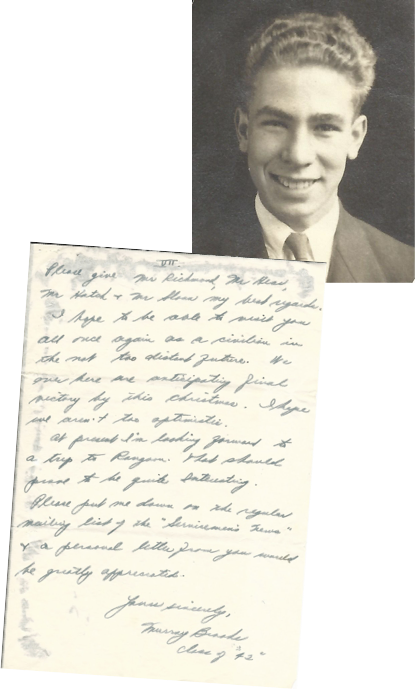 VII
Please give Mr Richmond, Mr Hess,
Mr Hatch & Mr Sloan my best regards.
I hope to be able to visit you
all once again as a civilian in
the not too distant future. We
over here are anticipating final
victory by this christmas. I hope
we aren't too optimistic.
At present I'm looking forward to
a trip to Rangoon. that should
prove to be quite interesting.
Please put me down on the regular
mailing list of the "Servicemen's News"
& a personal letter from you would
be greatly appreciated.
Yours sincerely,
Murray Brooks
Class of "42"